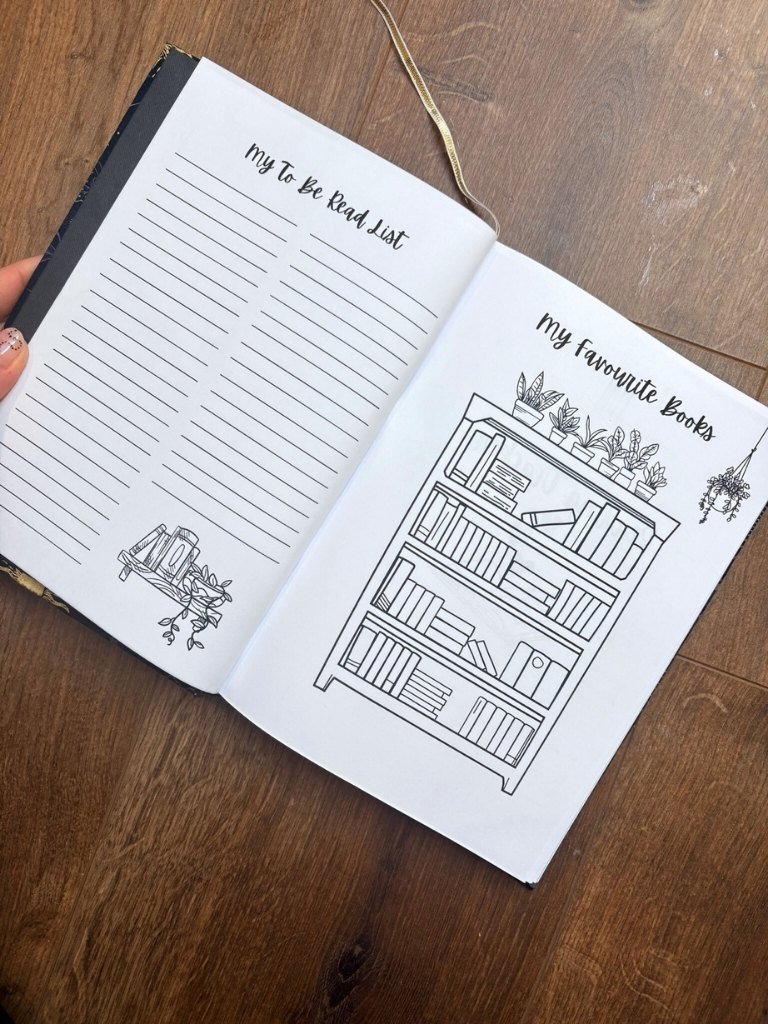 My To Be Read List
My Favourite Books